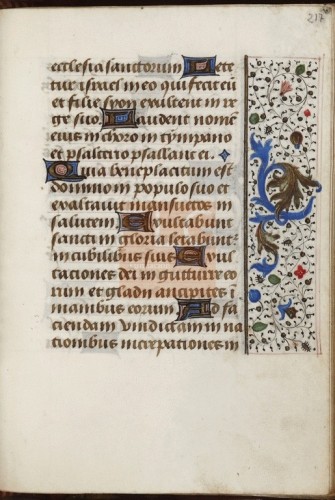 217
ecclesia sanctorum Lete
tur israel in eo qui fecit eū
et filie syon exultent in re
ge suo Laudent nomē
eius in choro in tympano
et psalterio psallant ei
Quia beneplacitum est
domino in populo suo et
exaltavit mansuetos in
salutem Exultabunt
sancti in gloria letabunt
in cubilibus suis Exul
taciones dei in gutture eo
rum et gladii ancipites ī
manibus eorum Ad fa
ciendam vindictam in na
tionibus increpationes in